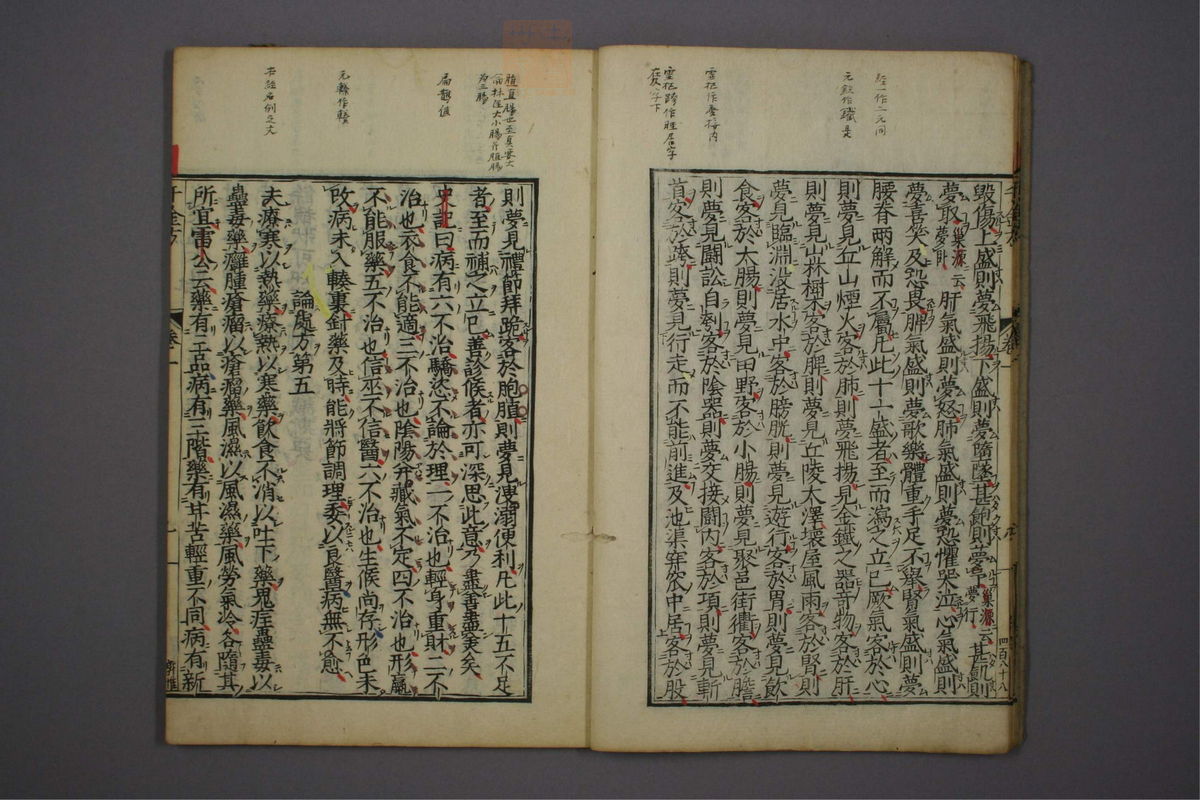 毀傷上盛則夢飛揚下盛則夢墮墜甚飽則夢予巢源云夢行甚飢則
夢取巢源云夢卧肝氣盛則夢怒肺氣盛則夢恐懼哭泣心氣盛則
夢喜笑及恐畏脾氣盛則夢歌樂體重手足不舉腎氣盛則夢
腰脊兩解而不屬凡此十二盛者至而瀉之立已厥氣客於心
則夢見丘山煙火客於肺則夢飛揚見金鐵之器奇物客於肝
則夢見山林樹木客於脾則夢見丘陵大澤壞屋風雨客於腎則
夢見臨淵没居水中客於膀胱則夢見遊行客於胃則夢見飲
食客於大腸則夢見田野客於小腸則夢見聚邑街衢客於膽
則夢見鬬訟自刳客於陰器則夢交接鬬内客於項則夢見斬
首客於跨則夢見行走而不能前進及池渠穽窌中居客於股
四百八十八
經一作二元同
元鉄作鐵是
靈樞作夢接内
靈樞跨作脛居字
在及字下
則夢見禮節拜跪客於胞䐈則夢見溲溺便利凡此十五不足
者至而補之立已善診候者亦可深思此意乃盡善盡美矣
史記曰病有六不治驕恣不論於理一不治也輕身重財二不
治也衣食不能適三不治也陰陽并藏氣不定四不治也形羸
不能服藥五不治也信巫不信醫六不治也生候尚存形色未
改病未入腠裏針藥及時能將節調理委以良醫病無不愈
論處方第五
夫療寒以熱藥療熱以寒藥飲食不消以吐下藥鬼疰蠱毒以
蠱毒藥癰腫瘡瘤以瘡瘤藥風濕以風濕藥風勞氣冷各隨其
所宜雷公云藥有三品病有三階藥有甘苦輕重不同病有新
扁鵲值
卷一